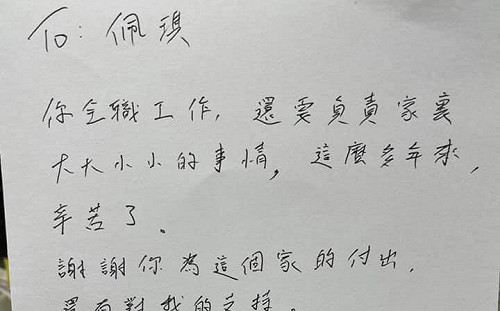 To: 佩琪
你全職工作，還要負責家裏
大大小小的事情，這麼多年來，
辛苦了。
謝謝你為這個家的付出，
還有對我的支持。